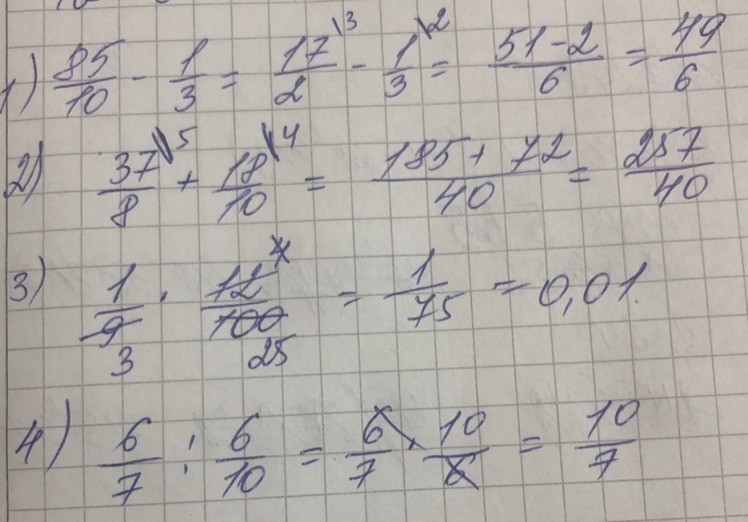 1) 85/10 - 1/3 = 17\3/2 - 1\2/3 = 51-2/6 = 49/6
2) 37\5/8 + 18\4/10 = 185+72/40 = 257/40
3) 1/9 · 12/100 = 1/75 = 0,01.
4
3 25
4) 6/7 : 6/10 = 6/7 · 10/6 = 10/7